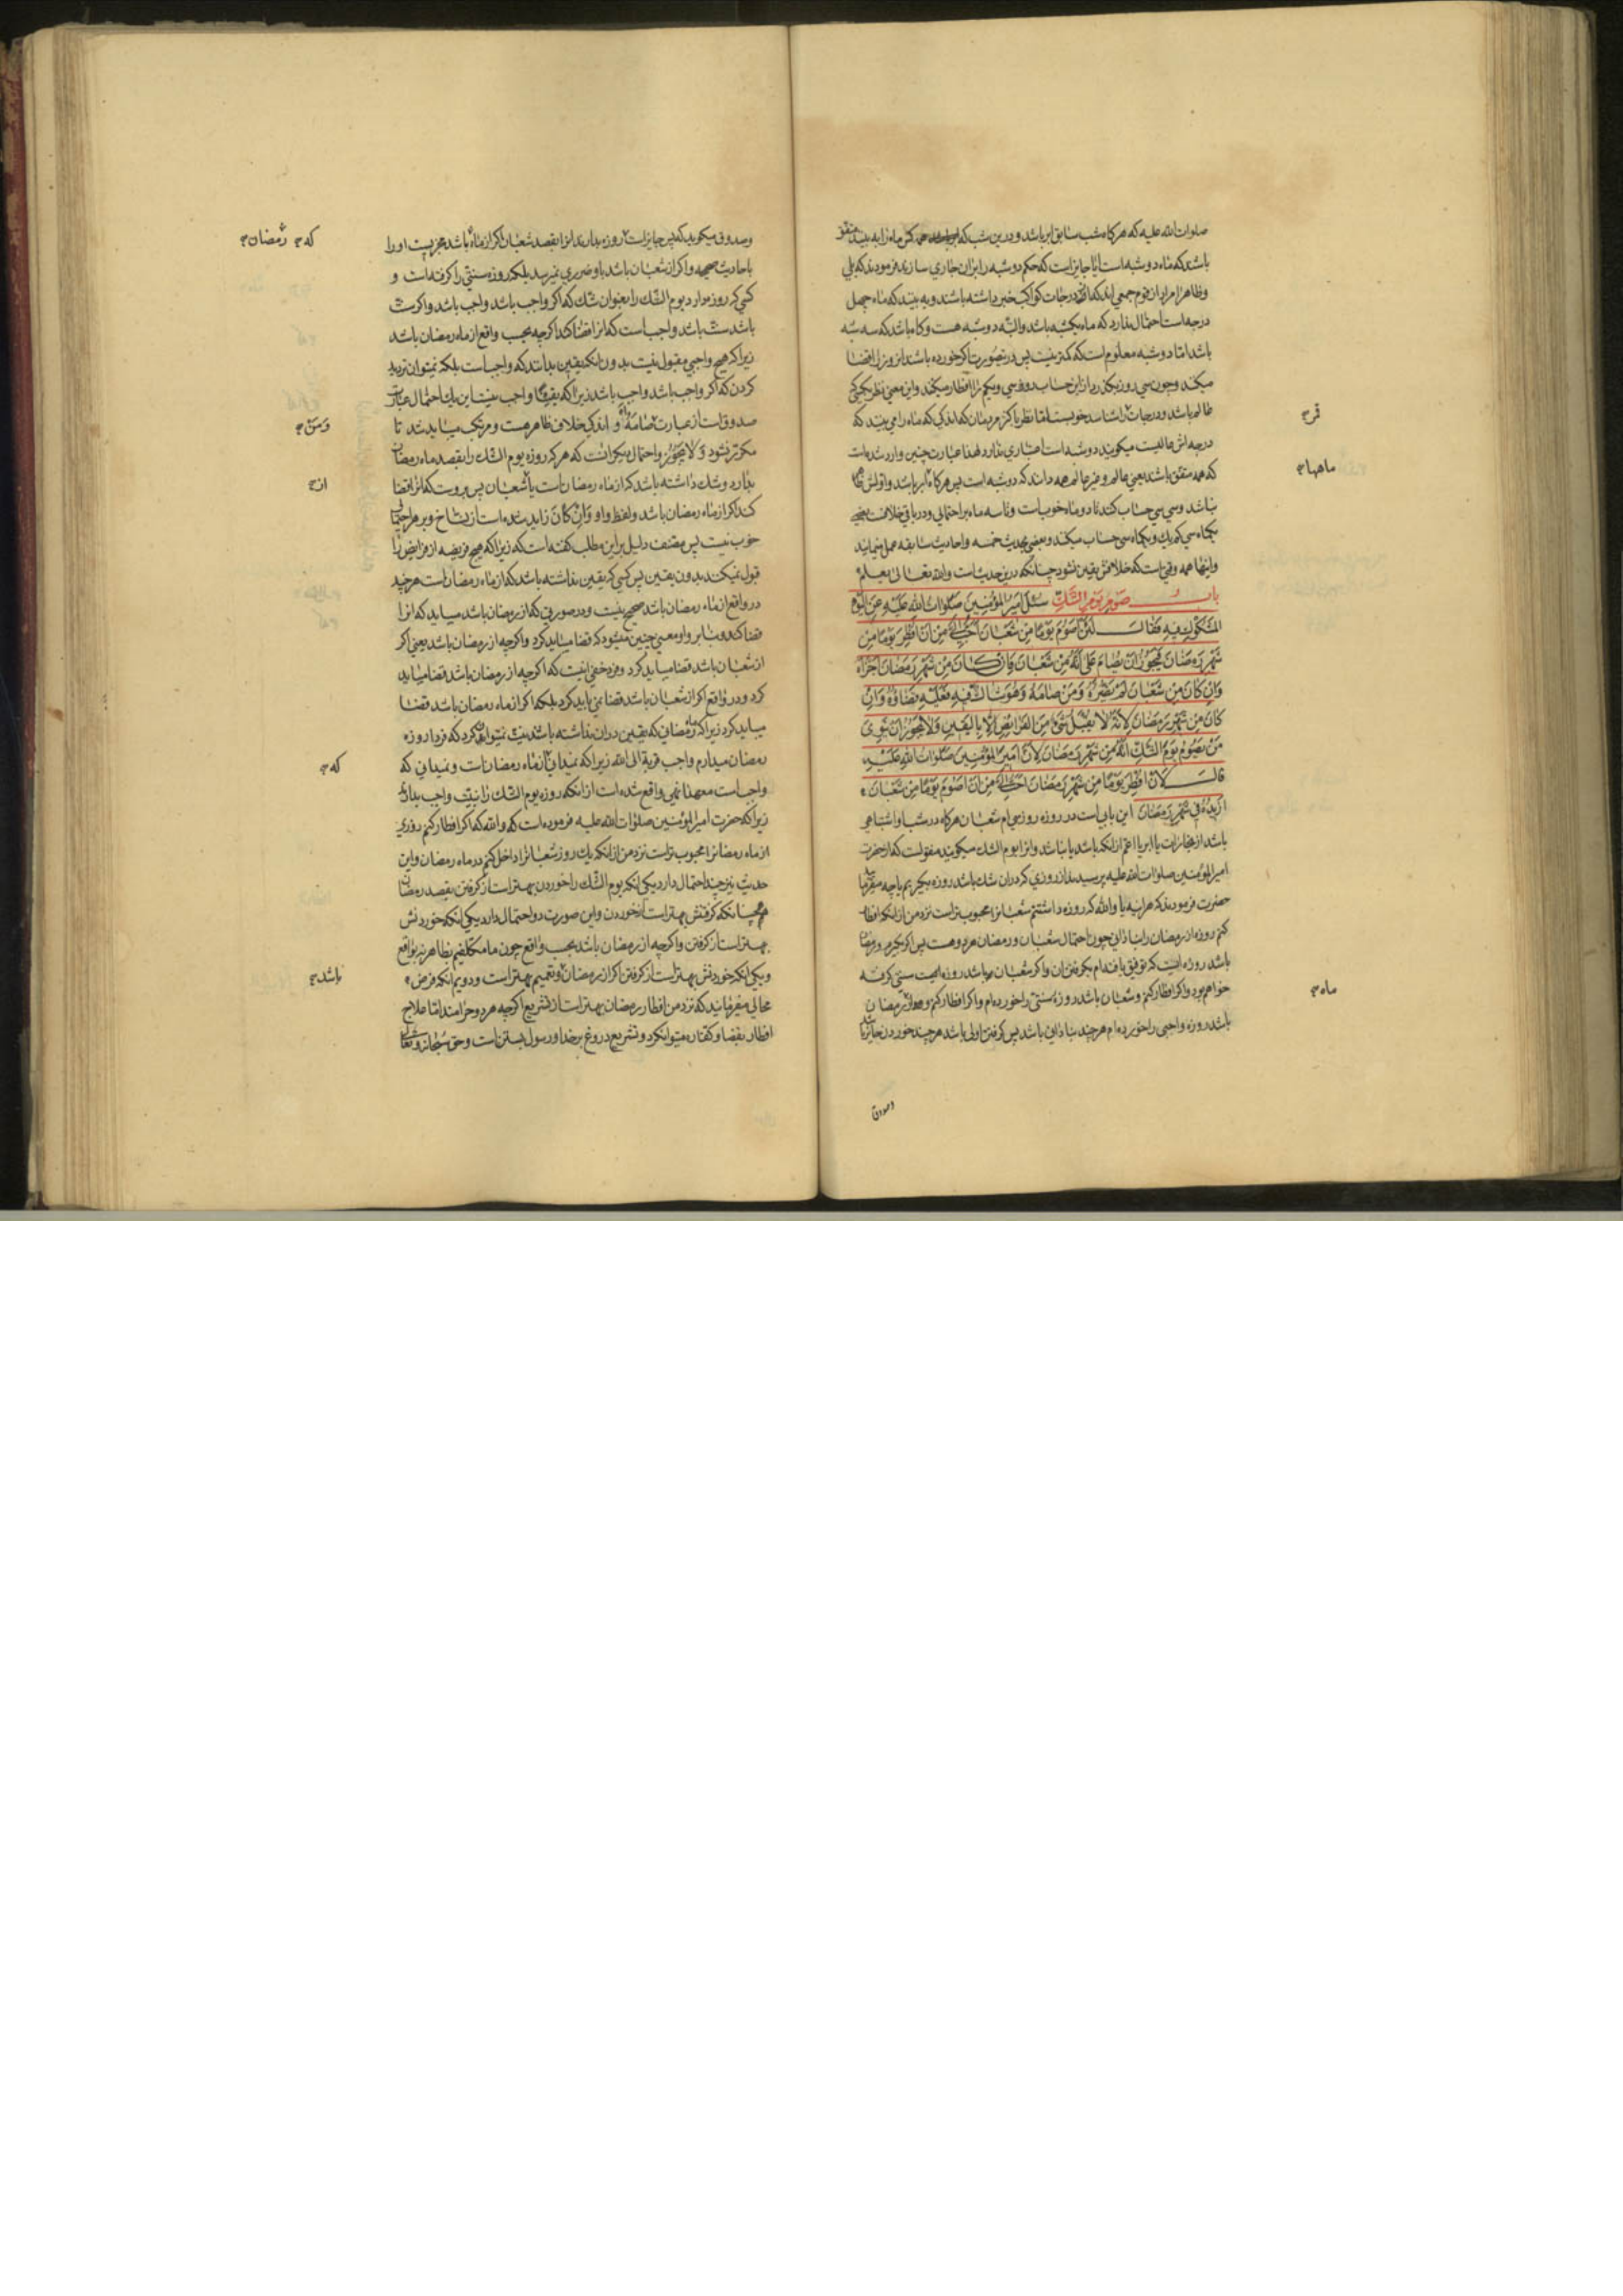 صلوات الله علیه که هرکاه شب سابق ابر باشد و درین شب که همه کس ماه را به بینند متفق
باشند که ماه دو شبه است ایا جایز است که حکم دو شبه را بران جاری سازند فرمودند که بلی
و ظاهرا مراد از قوم جمعی اند که از درجات کواکب خبر داشته باشند و به بینند که ماه چهل
درجه است احتمال ندارد که ماه یکشبه باشد و البته دو شبه هست و کاه باشد که سه شبه
باشد اما دو شبه معلوم است که کمتر نیست پس درین صورت اکر خورده باشد انروز را قضا
میکند و چون سی روز بگذرد از این حساب روز سی و یکم را افطار میکند و این معنی نظر بکسی که
عالم باشد و درجات را شناسد خوبست اما نظر باکثر مردمان که اندکی که ماه را می بینند که
قمر
درجه اش عالیست میکویند دو شبه است اعتباری ندارد لهذا عبارت چنین وارد شده است
که همه متفق باشند یعنی عالم و غیر عالم همه دانند که دو شبه است پس هرکاه ابر باشد و اولش ظاهر
ماهها
نباشد و سی سی حساب کنند تا دو ماه خوب است و تا سه ماه بر احتمالی و در باقی خلاف بعضی
یکماه سی کم یک و یکماه سی حساب میکنند و بعضی بحدیث خمسه و احادیث سابقه عمل مینمایند
و اینها همه وقتی است که خلافش یقین نشود چنانکه درین حدیث است والله تعالی یعلم
باب صوم یوم الشک سئل امیر المؤمنین صلوات الله علیه عن الیوم
المشکوک فیه فقال لئن اصوم یوما من شعبان احب الی من ان افطر یوما من
شهر رمضان فیجوز ان یصام علی انه من شعبان فان کان من شهر رمضان اجزاه
وان کان من شعبان لم یضره ومن صامه وهو شاک فیه فعلیه قضاؤه وان
کان من شهر رمضان لانه لا یقبل شیء من الفرایض الا بالیقین ولا یجوز ان ینوی
من یصوم یوم الشک انه من شهر رمضان لان امیر المؤمنین صلوات الله علیه
قال لان افطر یوما من شهر رمضان احب الی من ان اصوم یوما من شعبان
ازیده فی شهر رمضان این بابی است در روزه روز سیام شعبان هرکاه در شب او اشتباهی
باشد از بخارات یا ابر یا اعم از انکه باشد یا نباشد و انرا یوم الشک میکویند منقولست که از حضرت
امیر المؤمنین صلوات الله علیه پرسیدند از روزی که در ان شک باشد روزه بکیریم یا چه میفرمایید
حضرت فرمودند که هراینه یا والله که روزه داشتنم شعبانرا محبوبتر است نزد من از انکه افطار
کنم روزه از رمضان را بنادانی چون احتمال شعبان و رمضان هر دو هست پس اکر بکیرم و رمضان
باشد روزه ایست که توفیق یافته ام بکرفتن ان و اکر شعبان باشد روزه سنتی کرفته
خواهم بود و اکر افطار کنم و شعبان باشد روزه سنتی را خورده ام و اکر افطار کنم و از رمضان
ماه
باشد روزه واجبی را خورده ام هرچند بنادانی باشد پس کرفتن اولی باشد هرچند خوردن جایز باشد
وصدوق
وصدوق میکوید که پس جایز است که روزه بدارند انرا بقصد شعبان اکر از ماه باشد مجزیست او را
که رمضان
باحادیث صحیحه و اکر از شعبان باشد باو ضرری نمیرسد بلکه روزه سنتی را کرفته است و
کسی که روزه دارد یوم الشک را بعنوان شک که اکر واجب باشد واجب باشد و اکر سنت
باشد سنت باشد واجب است که انرا قضا کند اکرچه بحسب واقع از ماه رمضان باشد
زیرا که هیچ واجبی مقبول نیست بدون انکه بیقین بدانند که واجب است بلکه نمیتوان تردید
کردن که اکر واجب باشد واجب باشد زیرا که یقینا واجب نیست این یک احتمال عبارت
صدوق است از عبارت صامه و اندکی خلاف ظاهر هست و مرتکب میباید شد تا
ومن
مکرر نشود ولا یجوز و احتمال دیکر انست که هرکه روزه یوم الشک را بقصد ماه رمضان
بدارد و شک داشته باشد که از ماه رمضان است یا شعبان پس بروست که انرا قضا
از
کند اکر از ماه رمضان باشد و لفظ واو وان کان زاید شده است از نساخ و بر هر احتمالی
خوب نیست پس مصنف دلیل بر این مطلب کفته است که زیرا که هیچ فریضه از فرایض را
قبول نمیکنند بدون یقین پس کسی که یقین نداشته باشد که از ماه رمضان است هرچند
در واقع از ماه رمضان باشد صحیح نیست و در صورتی که از رمضان باشد میباید که انرا
قضا کند و بنا بر واو معنی چنین میشود که قضا میباید کرد و اکرچه از رمضان باشد یعنی اکر
از شعبان باشد قضا میباید کرد و فرد خفی اینست که اکرچه از رمضان باشد قضا میباید
کرد و در واقع اکر از شعبان باشد قضا نمی باید کرد بلکه اکر از ماه رمضان باشد قضا
میباید کرد زیرا که ماه رمضانی که یقین دران نداشته باشد نیت نمیتواند کرد که فردا روزه
رمضان میدارم واجب قربة الی الله زیرا که نمیدانی از ماه رمضان است و نمیدانی که
که
واجب است معهذا نهی واقع شده است از انکه روزه یوم الشک را بنیت واجب بدارند
زیرا که حضرت امیر المؤمنین صلوات الله علیه فرموده است که والله که اکر افطار کنم روزی
از ماه رمضانرا محبوبتر است نزد من از انکه یک روز شعبانرا داخل کنم در ماه رمضان و این
حدیث نیز چند احتمال دارد یکی انکه یوم الشک را خوردن بهتر است از کرفتن بقصد رمضان
همچنانکه کرفتنش بهتر است از خوردن و این صورت دو احتمال دارد یکی انکه خوردنش
بهتر است از کرفتن و اکرچه از رمضان باشد بحسب واقع چون ما مکلفیم بظاهر نه بواقع
و یکی انکه خوردنش بهتر است از کرفتن اکر از رمضان و تعمیم بهتر است و دویم انکه فرض
باشد
محالی میفرمایند که نزد من افطار رمضان بهتر است از تشریع اکرچه هر دو حرامند اما علاج
افطار بقضا و کفاره میتوان کرد و تشریع دروغ بر خدا و رسول بستن است و حق سبحانه و تعالی